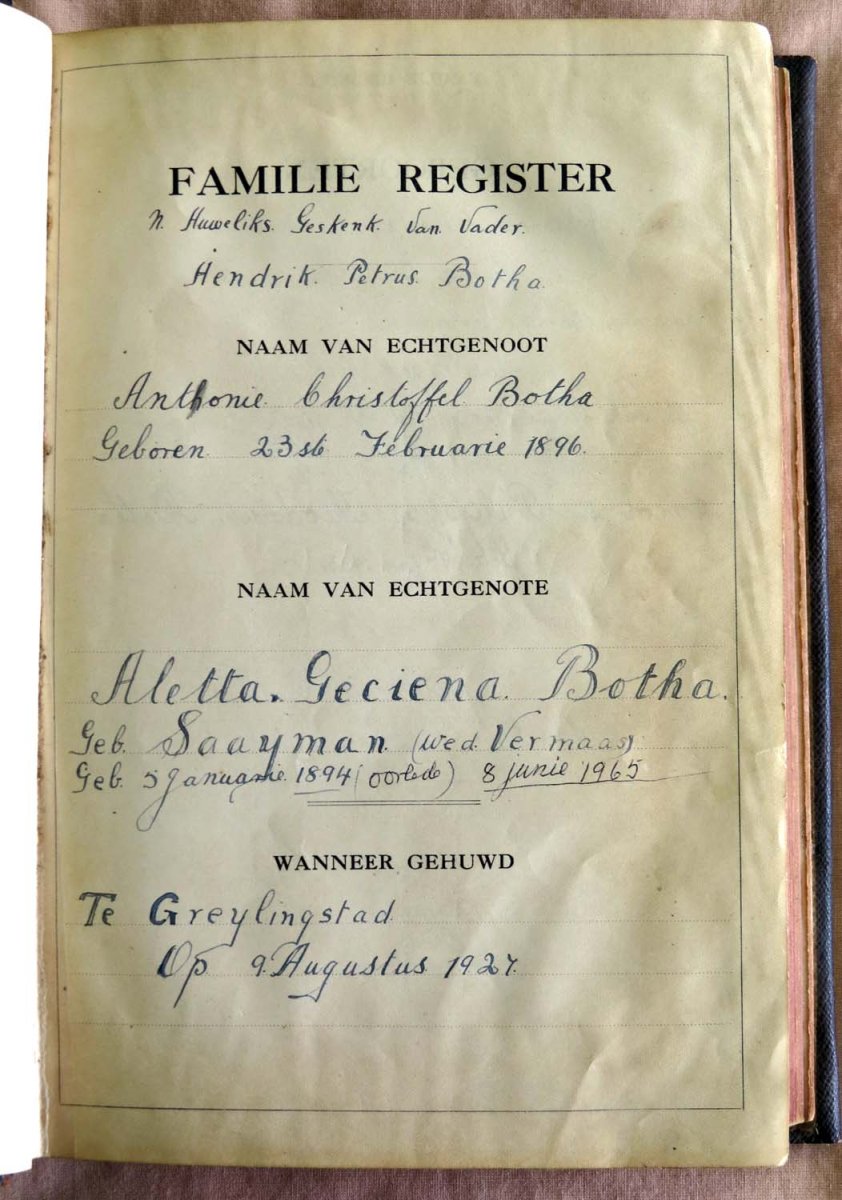 FAMILIE REGISTER
N. Huweliks. Geskenk. Van. Vader.
Hendrik. Petrus. Botha.
NAAM VAN ECHTGENOOT
Anthonie Christoffel Botha
Geboren 23ste Februarie 1896.
NAAM VAN ECHTGENOTE
Aletta. Geciena. Botha.
Geb. Saayman. (wed. Vermaas)
Geb. 5 Januarie. 1894 (oorlede) 8 Junie 1965
WANNEER GEHUWD
Te Greylingstad
Op 9. Augustus 1927.